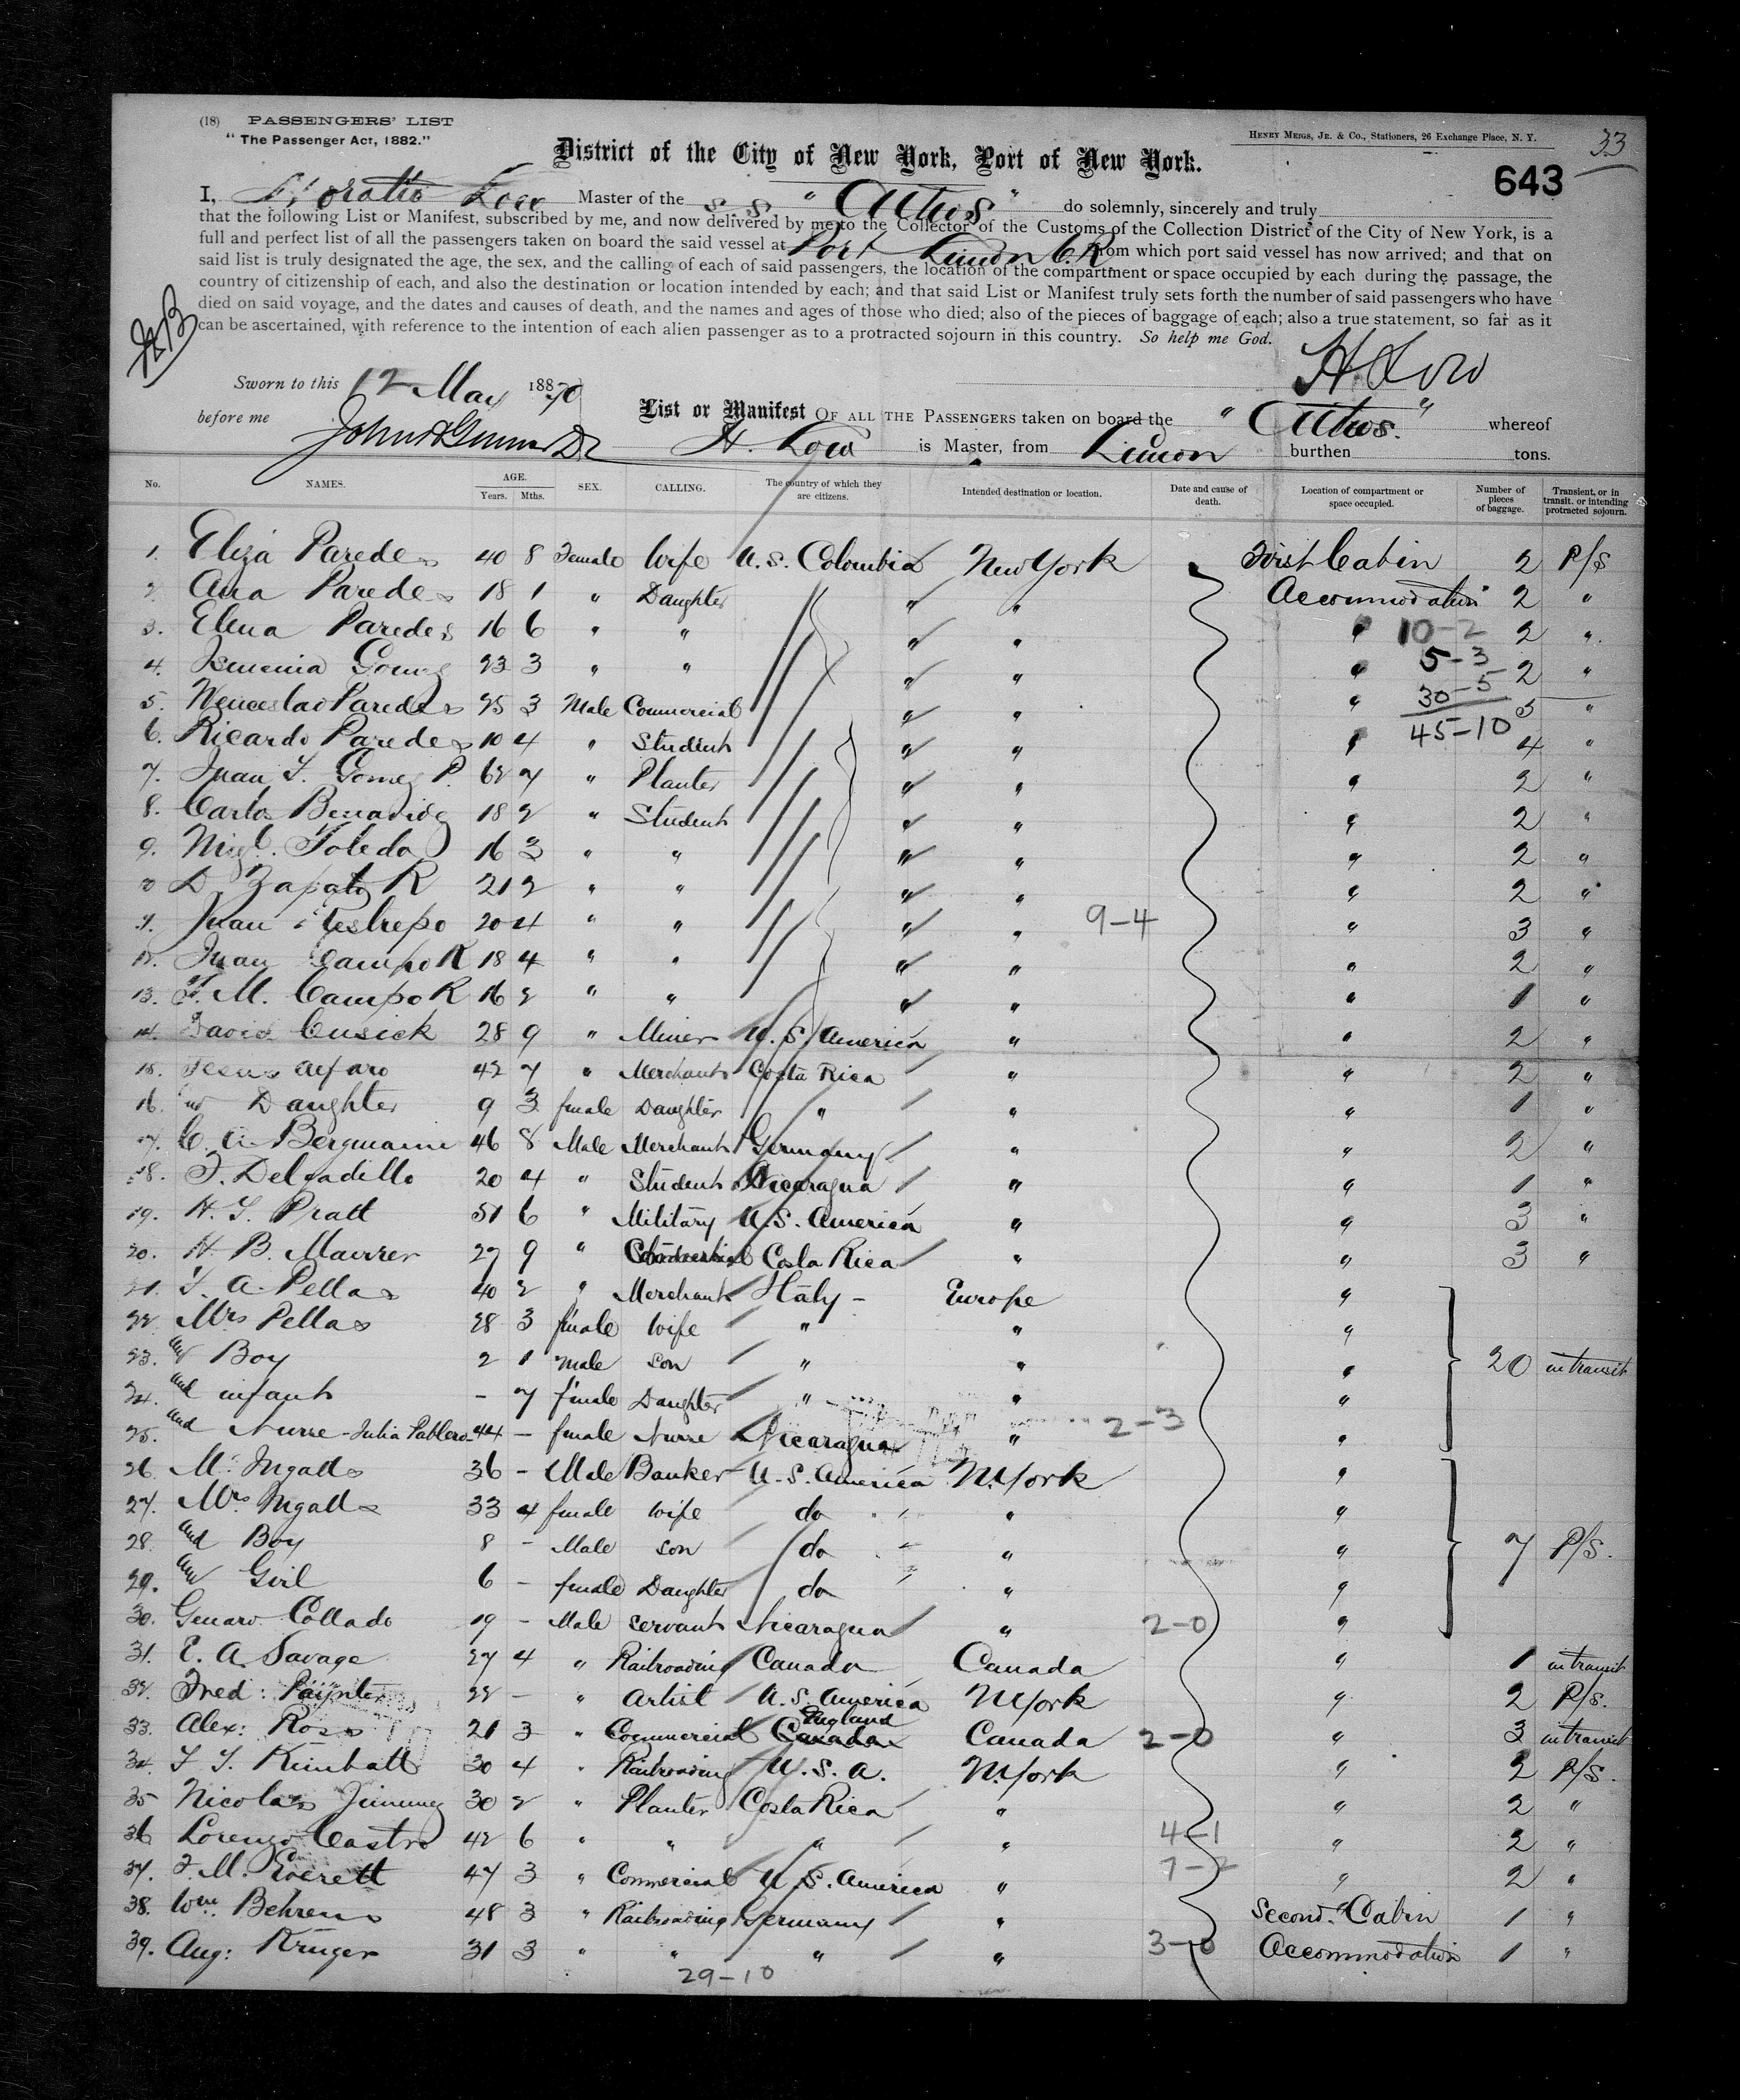 (18) PASSENGERS' LIST
"The Passenger Act, 1882."
HENRY MEIGS, JR. & CO., Stationers, 26 Exchange Place, N. Y.
33
District of the City of New York, Port of New York.
643
I, Horatio Low Master of the S.S. "Athos" do solemnly, sincerely and truly
that the following List or Manifest, subscribed by me, and now delivered by me to the Collector of the Customs of the Collection District of the City of New York, is a
full and perfect list of all the passengers taken on board the said vessel at Port Limon C.R. from which port said vessel has now arrived; and that on
said list is truly designated the age, the sex, and the calling of each of said passengers, the location of the compartment or space occupied by each during the passage, the
country of citizenship of each, and also the destination or location intended by each; and that said List or Manifest truly sets forth the number of said passengers who have
died on said voyage, and the dates and causes of death, and the names and ages of those who died; also of the pieces of baggage of each; also a true statement, so far as it
can be ascertained, with reference to the intention of each alien passenger as to a protracted sojourn in this country. So help me God.
H. Low
Sworn to this 12 May 1890
before me
List or Manifest OF ALL THE PASSENGERS taken on board the "Athos." whereof
H. Low is Master, from Limon burthen tons.
No. NAMES. AGE. Years. Mths. SEX. CALLING. The country of which they are citizens. Intended destination or location. Date and cause of death. Location of compartment or space occupied. Number of pieces of baggage. Transient, or in transit, or intending protracted sojourn.
1. Eliza Paredes 40 8 Female Wife U.S. Colombia New York First Cabin 2 P/S
2. Ana Paredes 18 1 " Daughter " " Accommodation 2 "
3. Elena Paredes 16 6 " " " " " 10-2 2 "
4. Ismenia Gomez 23 3 " " " " " 5-3 2 "
5. Wenceslao Paredes 25 3 Male Commercial " " " 30-5 3 "
6. Ricardo Paredes 10 4 " Student " " " 45-10 4 "
7. Juan F. Gomez P. 62 7 " Planter " " " 2 "
8. Carlos Benavidez 18 2 " Student " " " 2 "
9. Migl. Toledo 16 3 " " " " " 2 "
10 D. Zapata R 21 2 " " " " " 2 "
11. Juan Restrepo 20 4 " " " " 9-4 " 3 "
12. Juan Campo R 18 4 " " " " " 2 "
13. F. M. Campo R 16 2 " " " " " 1 "
14. David Cusick 28 9 " Miner U.S. America " " 2 "
15. Jesus Alfaro 42 7 " Merchant Costa Rica " " 2 "
16. and Daughter 9 3 female Daughter " " " 1 "
17. C. A. Bergmann 46 8 Male Merchant Germany " " 2 "
18. F. Delgadillo 20 4 " Student Nicaragua " " 1 "
19. H. S. Pratt 51 6 " Military U.S. America " " 3 "
20. H. B. Maurer 27 9 " Costa Rica " " 3 "
21. F. A. Pellas 40 2 " Merchant Italy - Europe "
22. Mrs Pellas 28 3 female wife " " "
23. and Boy 2 1 male son " " " 20 in transit
24. and infant - 7 female Daughter " " "
25. and Nurse - Julia Pablero 44 - female Nurse Nicaragua " 2-3 "
26. Mr. Ingalls 36 - Male Banker U.S. America N.York "
27. Mrs Ingalls 33 4 female wife do " "
28. and Boy 8 - Male son do " " 7 P/S.
29. and Girl 6 - female Daughter do " "
30. Genaro Collado 19 - Male servant Nicaragua " 2-0 "
31. E. A. Savage 27 4 " Railroading Canada Canada " 1 in transit
32. Fred: Paynter 22 - " Artist U.S. America N.York " 2 P/S.
33. Alex: Ross 21 3 " Commercial Canada England Canada 2-0 " 3 in transit
34. F. S. Kimball 30 4 " Railroading U.S.A. N.York " 2 P/S.
35 Nicolas Jimenez 30 2 " Planter Costa Rica " " 2 "
36 Lorenzo Castro 42 6 " " " " 4-1 " 2 "
37. F. M. Everett 47 3 " Commercial U.S. America " 7-2 " 2 "
38. Wm. Behrens 48 3 " Railroading Germany " Second Cabin 1 "
39. Aug: Kruger 31 3 " " " " 3-0 Accommodation 1 "
29-10